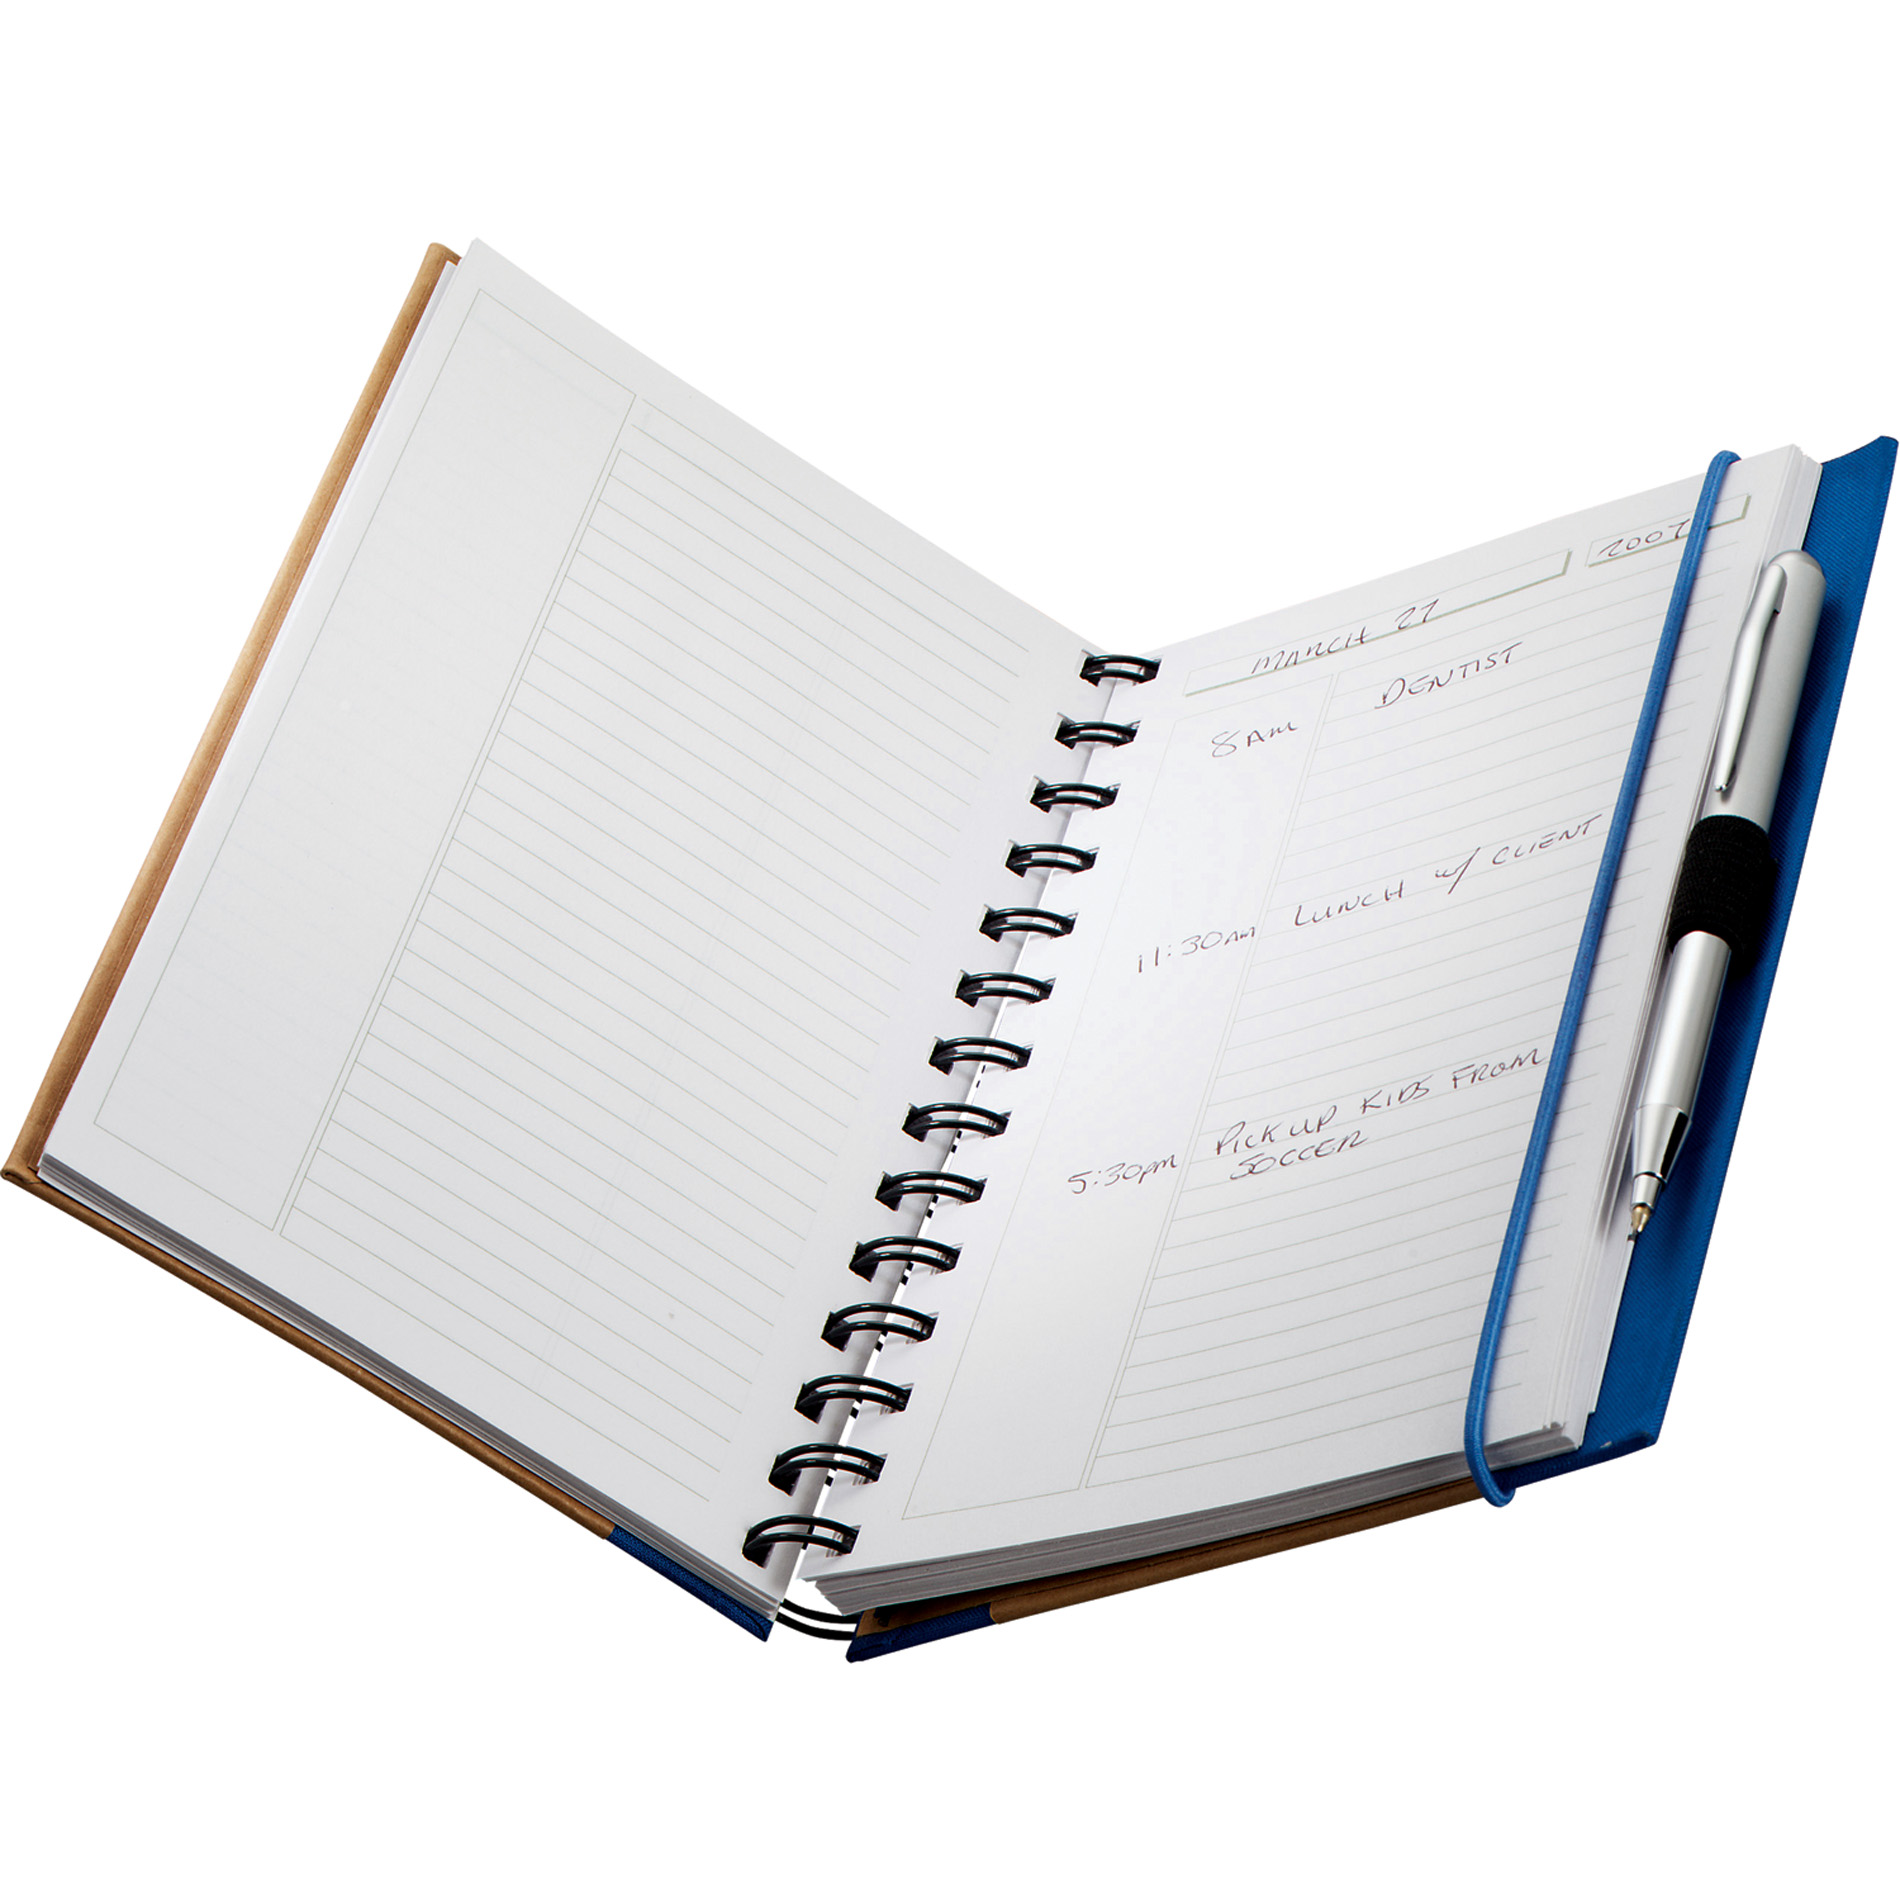 MARCH 27 2007
8AM DENTIST
11:30AM LUNCH w/ CLIENT
5:30pm PICK UP KIDS FROM
SOCCER